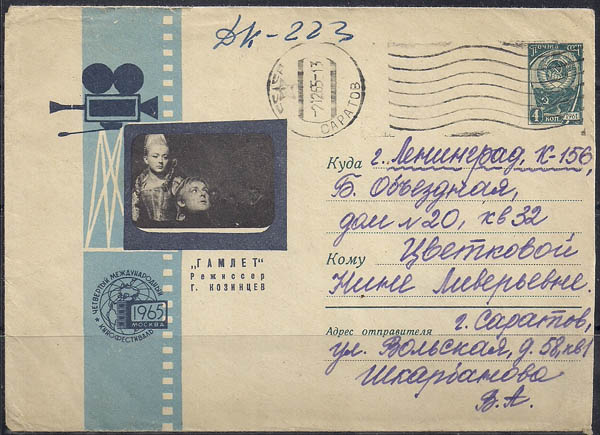 ДК-223
САРАТОВ
-21265-13
ПОЧТА СССР
4 КОП. 1961
Куда г. Ленинград, К-156,
Б. Объездная,
дом №20, кв 32
Кому Цветковой
Нине Ливерьевне.
Адрес отправителя г. Саратов,
ул. Вольская, д. 58, кв 1
Шкарбанова
В.А.
„ГАМЛЕТ"
Режиссер
г. КОЗИНЦЕВ
ЧЕТВЕРТЫЙ МЕЖДУНАРОДНЫЙ
КИНОФЕСТИВАЛЬ
1965
МОСКВА